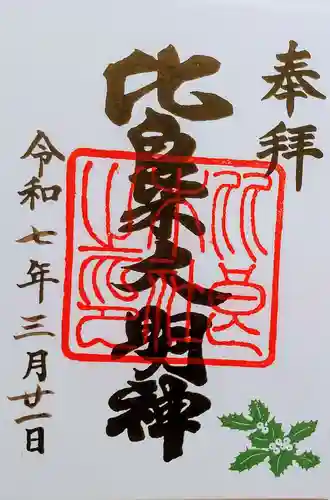 奉拝
比良木大明神
令和七年三月廿一日